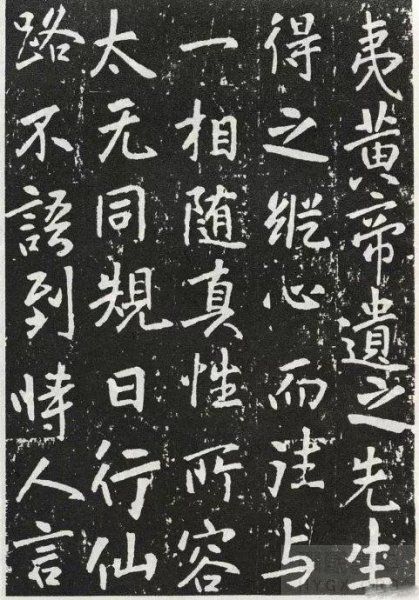 夷黄帝遺之先生
得之縱心而往与
一相随真性所容
太无同規日行仙
路不語到時人言